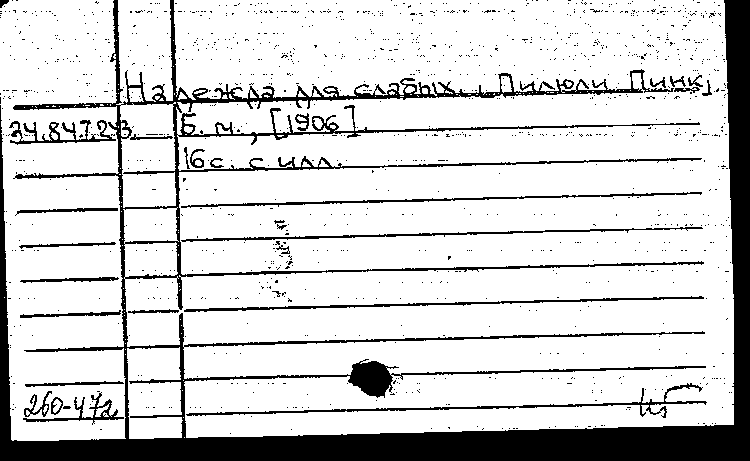 Надежда для слабых. Пилюли Пинк,
34.84.7.243. Б. м., [1906].
16 с. с илл.
260-472